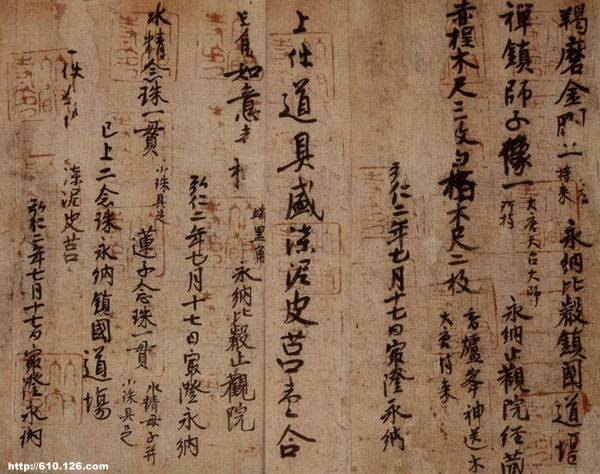 羯磨金剛二 持来
永納比叡鎮國道場
禪鎮師子像一 所持
大唐天台大師
永納止觀院経蔵
赤桯木尺二枚 白檀木尺二枚
香爐峯神送木
大唐持来
弘仁二年七月十七日最澄永納
上件道具盛漆泥皮筥壱合
如意
斑犀角
永納比叡止觀院
弘仁二年七月十七日最澄永納
水精念珠一貫 小珠具足
蓮子念珠一貫 水精母子并
小珠具足
已上二念珠永納鎮國道場
漆泥皮筥
弘仁二年七月十七日最澄永納
http://610.126.com